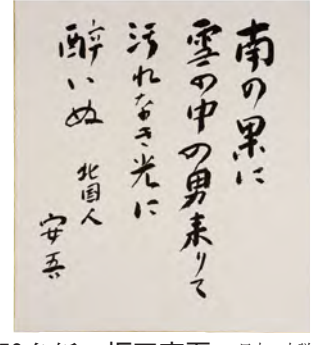 南の果に
雲の中の男来りて
汚れなき光に
酔いぬ
北国人
安吾